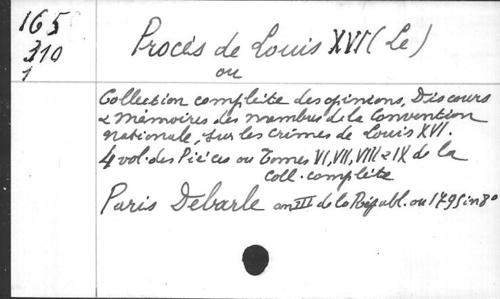 165
310
1
Procès de Louis XVI (Le)
ou
Collection complèite des opinions, Discours
& Mémoires des membres de la Convention
nationale, sur les crimes de Louis XVI.
4 vol. des Piéces ou Tomes VI, VII, VIII & IX de la
coll. complète
Paris Debarle an III de la Républ. ou 1795 in 8º